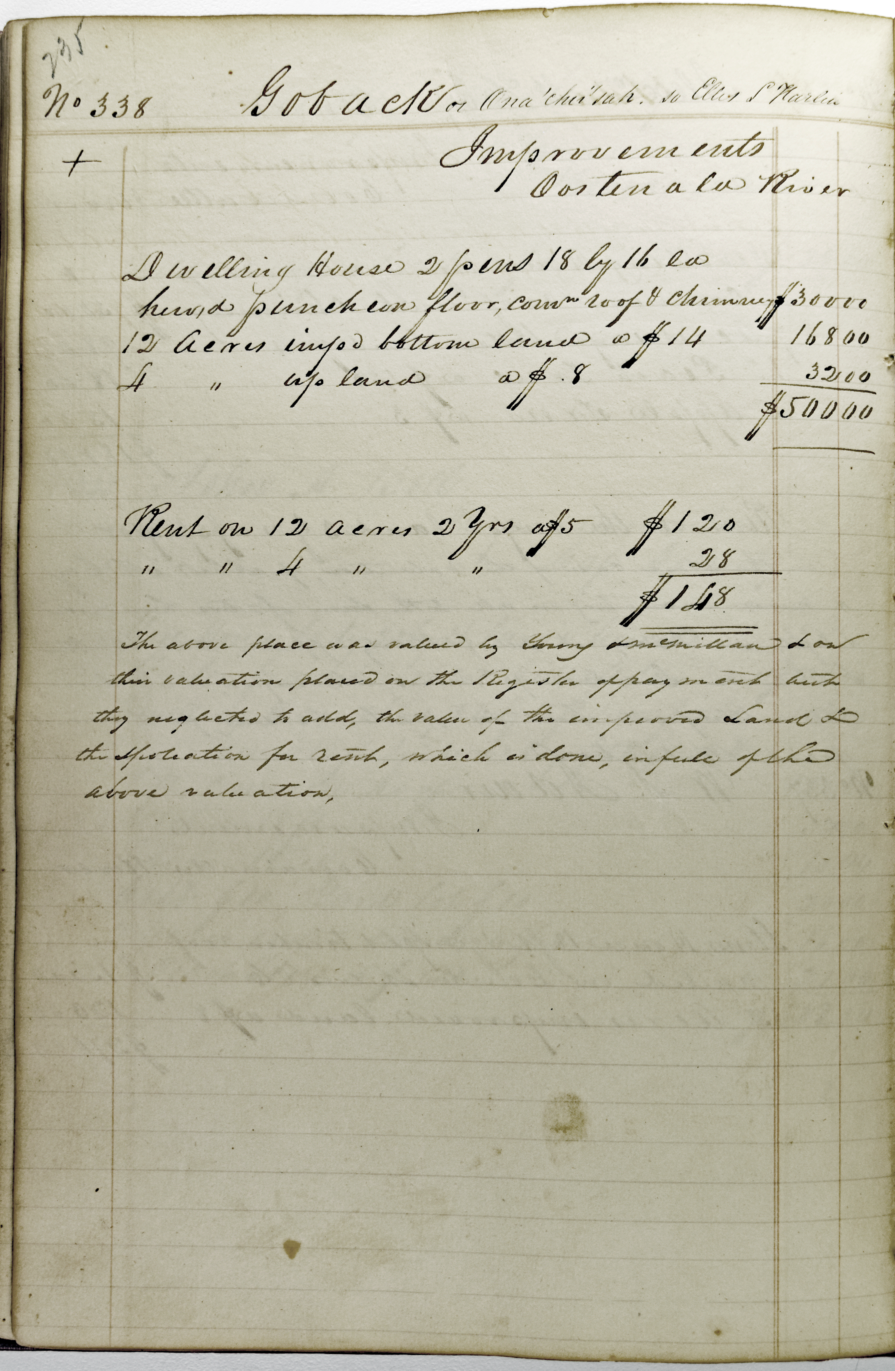 235.
No 338 Goback or Ona'chei'sah. so Ellis S Harlin
+ Improvements
Oostenala River
Dwelling House 2 pens 18 by 16 ea
hew,d puncheon floor, comn roof & chimney $300 00
12 Acres imp'd bottom land a $14 168 00
4 " up land a $.8 32 00
$500 00
Rent on 12 acres 2 Yrs a $5 $120
" " 4 " " 28
$148
The above place was valued by Young & McMillan & on
their valuation placed on the Register of payment but
they neglected to add, the value of the improved Land &
the Spoliation for rent, which is done, in full of the
above valuation,